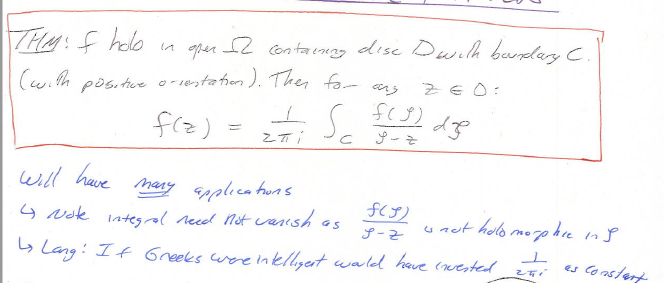 THM: f holo in open Ω containing disc D with boundary C.
(with positive orientation). Then for any z ∈ D:
f(z) = 1/2πi ∫_C f(ζ)/ζ-z dζ
will have many applications
↳ Note integral need not vanish as f(ζ)/ζ-z is not holomorphic in ζ
↳ Lang: If Greeks were intelligent would have invented 1/2πi as constant